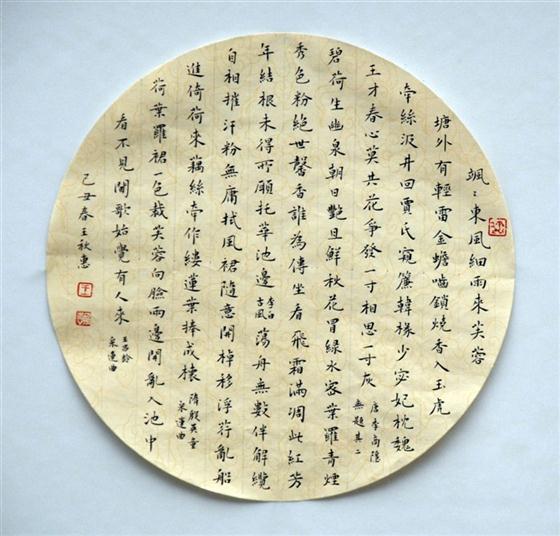 颯〻東風細雨來芙蓉
塘外有輕雷金蟾嚙鎖燒香入玉虎
牽絲汲井回賈氏窺簾韓掾少宓妃枕魏
王才春心莫共花爭發一寸相思一寸灰
唐李商隱
無題其二
碧荷生幽泉朝日艷且鮮秋花冒綠水密葉羅青煙
秀色粉絕世馨香誰為傳坐看飛霜滿凋此紅芳
年結根未得所願托華池邊
李白
古風
蕩舟無數伴解纜
自相摧汗粉無庸拭風裙隨意開棹移浮荇亂船
進倚荷來藕絲牽作縷蓮葉捧成
隋殷英童
采蓮曲
荷葉羅裙一色裁芙蓉向臉兩邊開亂入池中
看不見聞歌始覺有人來
王昌齡
采蓮曲
己丑春王秋惠
王